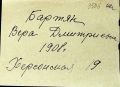 Бартян
Вера Дмитриевна
1908г.
Херсонская 19